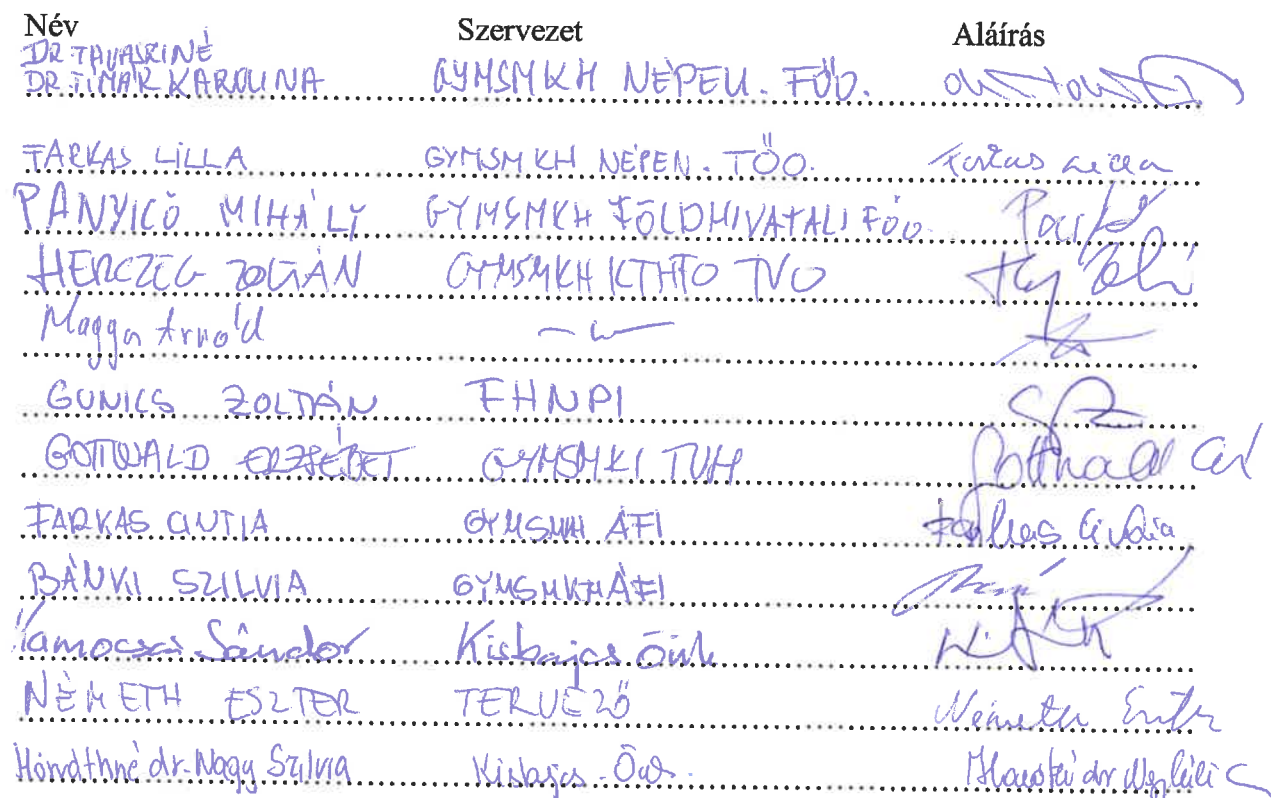 Név Szervezet Aláírás
DR. TAVASZINÉ
DR. TIMÁR KAROLINA GYMSMKH NÉPEÜ. FŐO.
FARKAS LILLA GYMSMKH NÉPEÜ. FŐO. Farkas Lilla
PANYICÓ MIHÁLY GYMSMKH FÖLDHIVATALI FŐO.
HERCZEG ZOLTÁN GYMSMKH KTHFO TVO
Magga Arnold
GUNICS ZOLTÁN FHNPI
GOTTWALD ERZSÉBET GYMSMKI TUH Gottwald
FARKAS CINTIA GYMSMKH ÁFI Farkas Cintia
BÁNKI SZILVIA GYMSMKH ÁFI
Vámocsai Sándor Kisbajcs Önk
NÉMETH ESZTER TERVEZŐ Németh Eszter
Horváthné dr. Nagy Szilvia Kisbajcs - Önk. Horváthné dr Nagy Szilvia